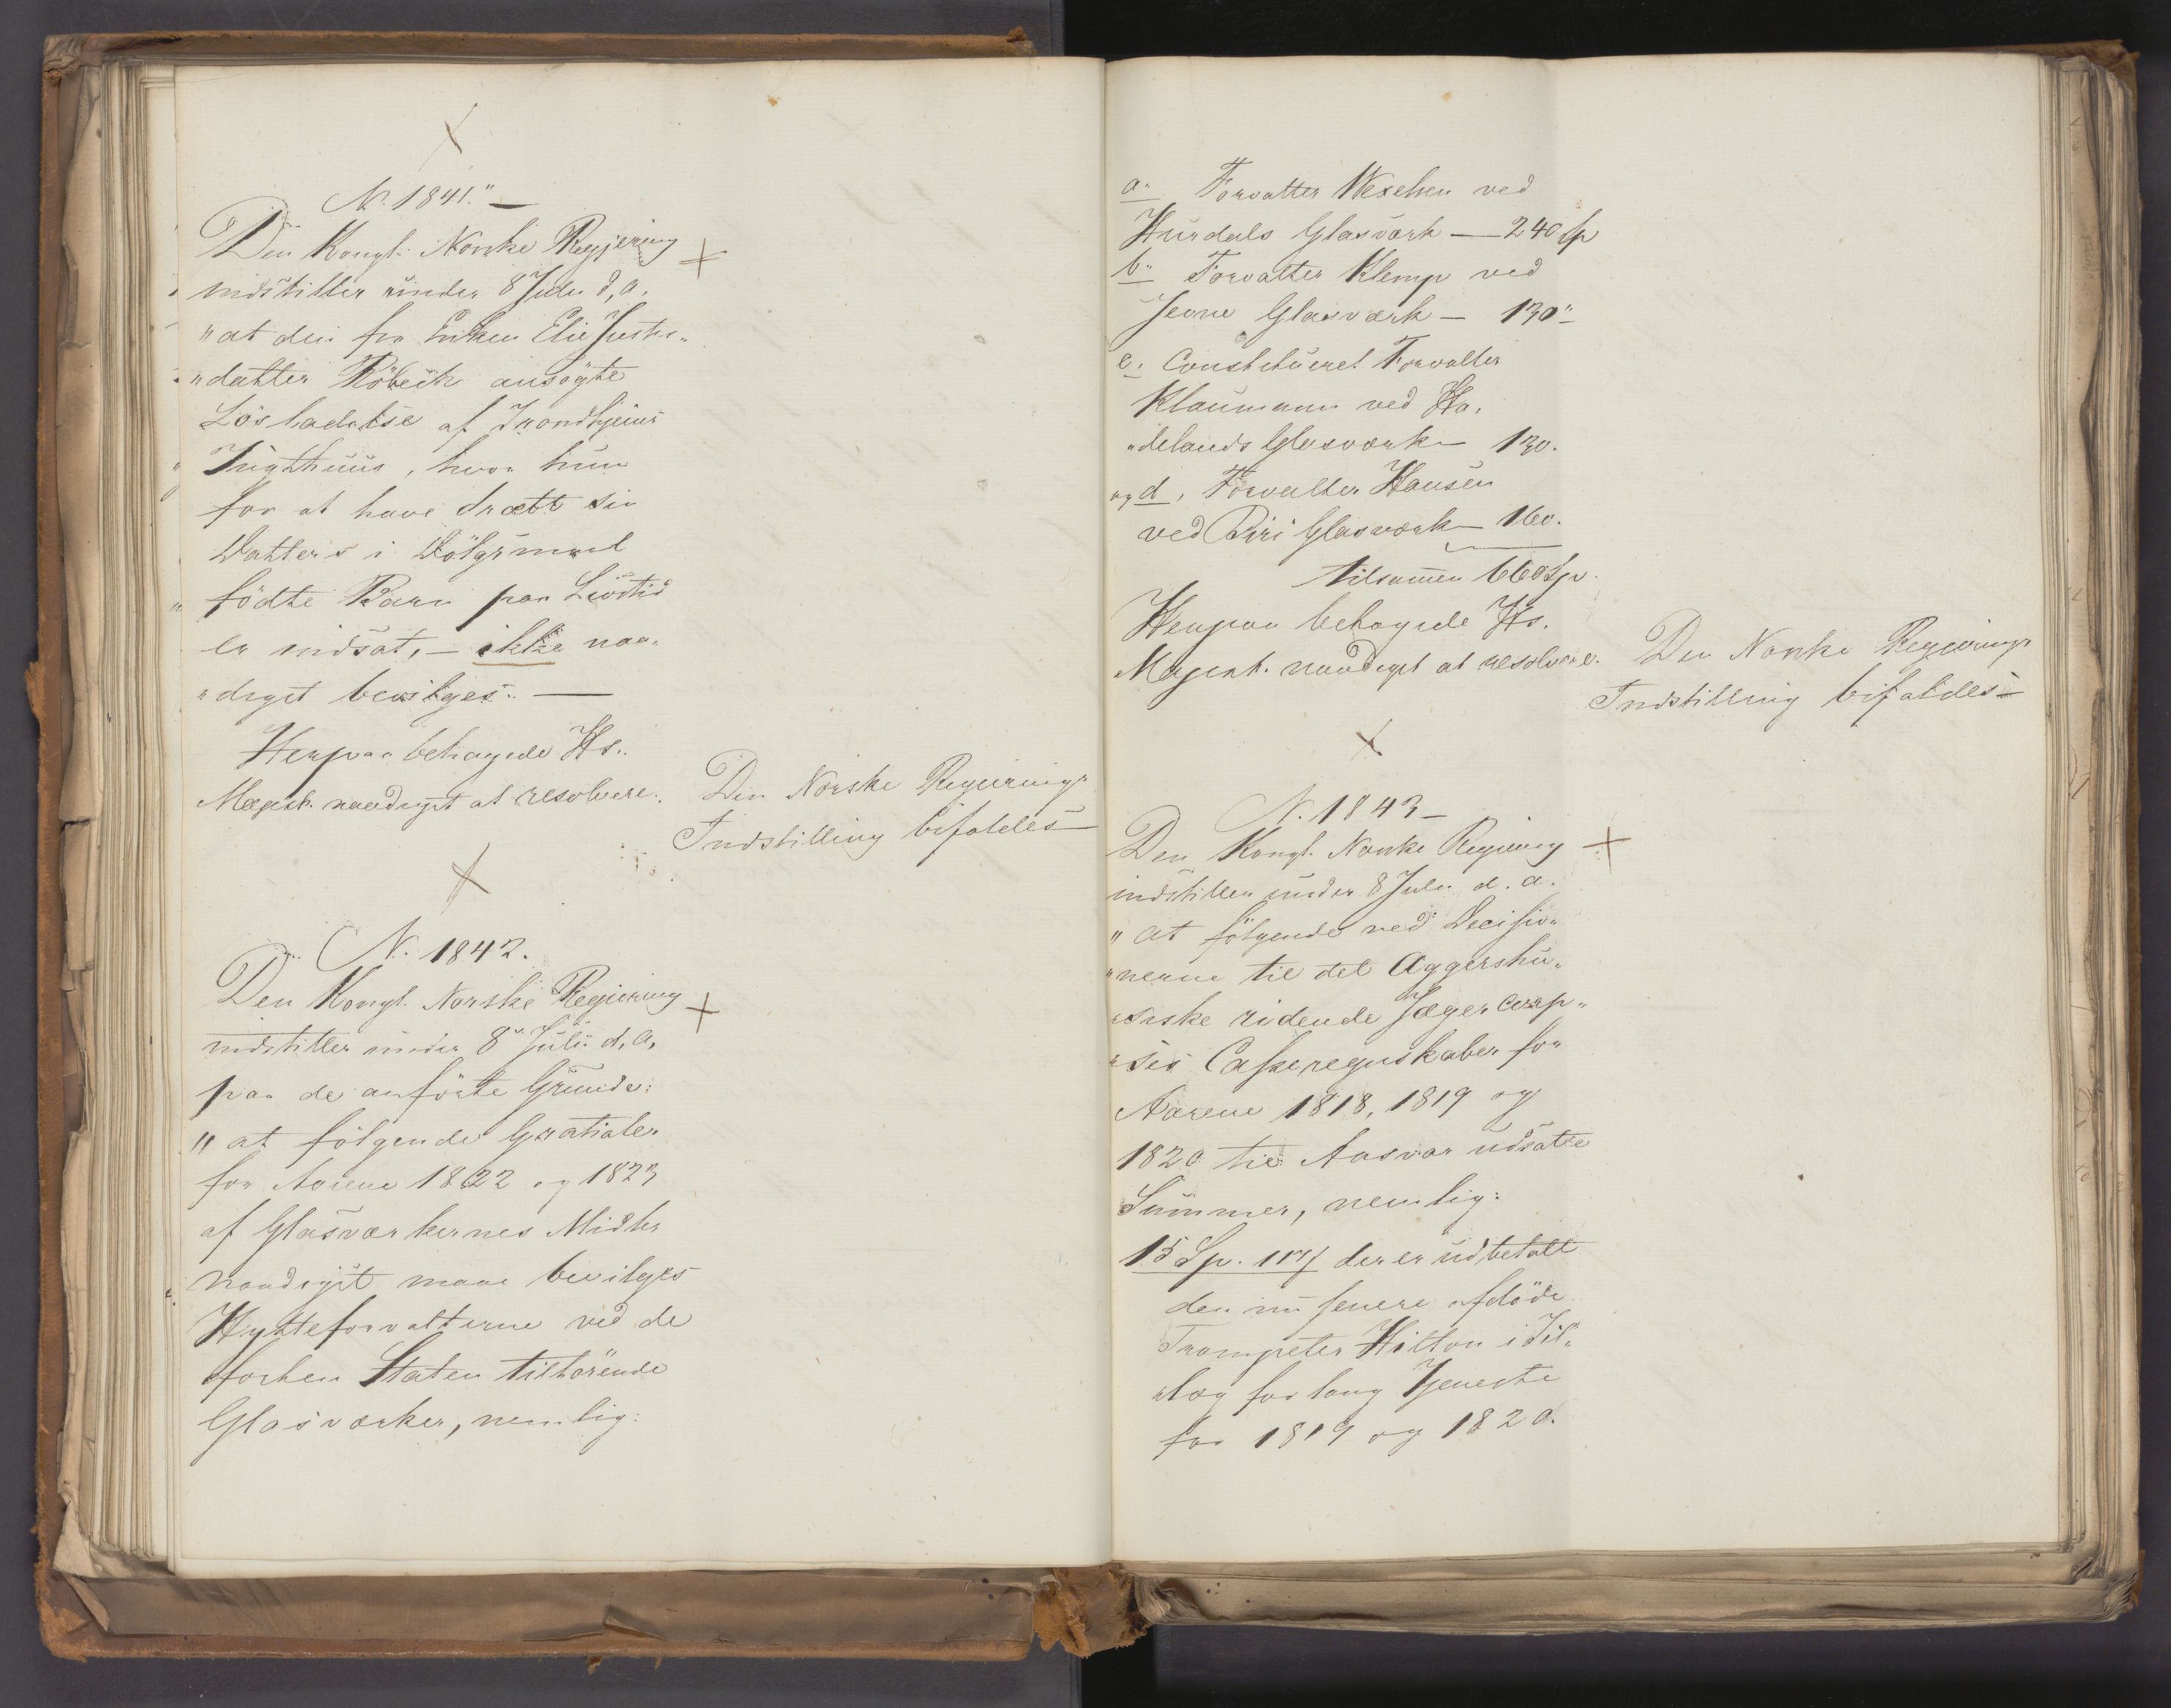 N. 1841."—
Den Kongl. Norske Regjering
indstiller under 8 Julii d. a.
"at den for Enken Elie Justs-
"datter Röbeck ansögte
Lösladelse af Trondhjems
Tugthuus, hvor hun
for at have dræbt sin
Datters i Dölgsmaal
födte Barn paa Livstid
er indsat, — ikke naa-
"digst bevilges. —
Herpaa behagede Hs.
Majest. naadigst at resolvere.
Den Norske Regierings
Indstilling bifaldes—
N. 1842.
Den Kongl. Norske Regiering
indstiller under 8 Julii d. a.
paa de anförte Grunde:
"at fölgende Gratialer
for Aarene 1822 og 1823
af Glasværkernes Midler
naadigst maae bevilges
Hytteforvalterne ved de
forhen Staten tilhörende
Glasværker, nemlig:
a" Forvalter Wexelsen ved
Hurdals Glasværk — 240 Sp
b" Forvalter Klemp ved
Jevne Glasværk — 130"
c. Constitueret Forvalter
Klaumann ved Ha-
"delands Glasværk — 130.
og d, Forvalter Hansen
ved Biri Glasværk — 160.
tilsammen 660 Sp.
Herpaa behagede Hs.
Majest. naadigst at resolvere.
Den Norske Regierings
Indstilling bifaldes—
N. 1843—
Den Kongl. Norske Regiering
indstiller under 8 Julii d. a.
"at fölgende ved Decisio-
"nerne til det Aggershu-
"siske ridende Jægercorp-
"ses Casseregnskaber for
Aarene 1818, 1819 og
1820 til Ansvar udsatte
Summer, nemlig:
15 Sp. 117 ß der er udbetalt
den nu senere afdöde
Trompeter Hilton i Til-
"læg for lang Tjeneste
for 1819 og 1820.